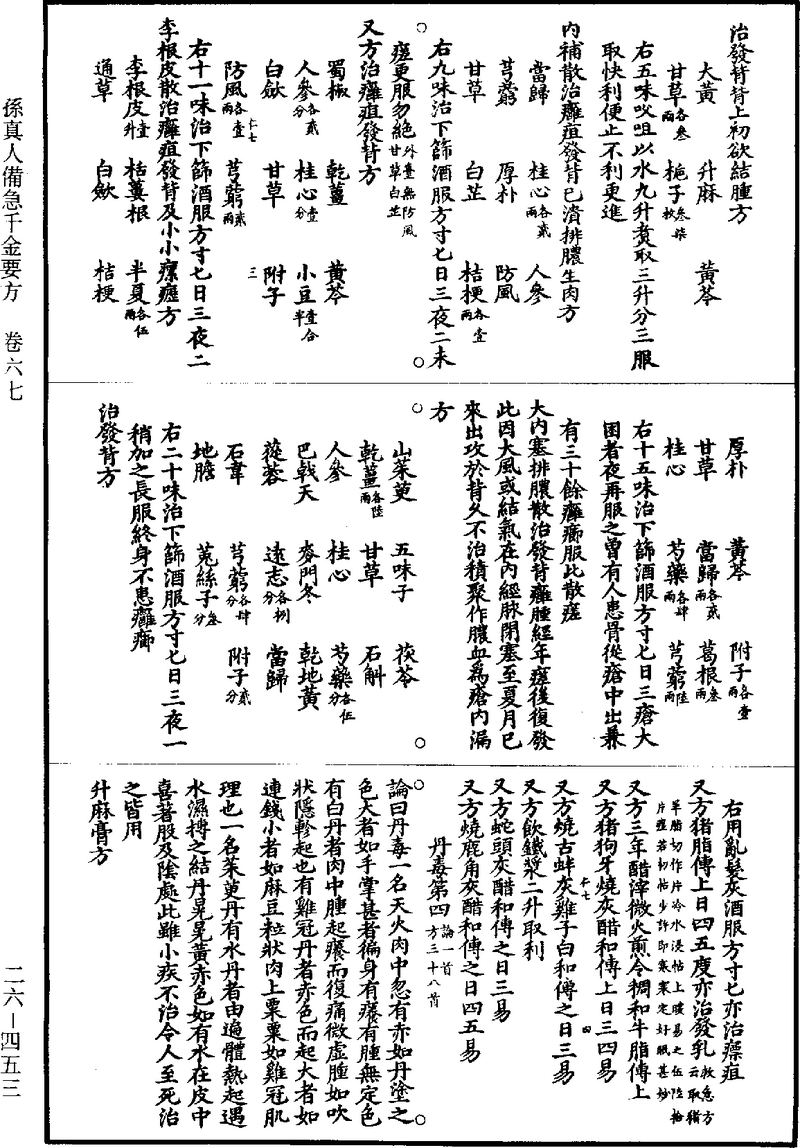 治發背背上初欲結腫方
大黃 升麻 黃芩
甘草各叁兩 梔子叁柒枚
右五味㕮咀以水九升煑取三升分三服
取快利便止不利更進
內補散治癰疽發背已潰排膿生肉方
當歸 桂心各貳兩 人參
芎藭 厚朴 防風
甘草 白芷 桔梗各壹兩
右九味治下篩酒服方寸匕日三夜二未
瘥更服勿絕外臺無防風甘草白芷
又方治癰疽發背方
蜀椒 乾薑 黃芩
人參各貳分 桂心壹分 小豆壹合半
白歛 甘草 附子
防風各壹兩 芎藭貳兩
右十一味治下篩酒服方寸匕日三夜二
李根皮散治癰疽發背及小小瘰癧方
李根皮壹升 栝蔞根 半夏各伍兩
通草 白歛 桔梗
厚朴 黃芩 附子各壹兩
甘草 當歸各貳兩 葛根叁兩
桂心 芍藥各肆兩 芎藭陸兩
右十五味治下篩酒服方寸匕日三瘡大
困者夜再服之曾有人患骨從瘡中出兼
有三十餘癰癤服此散瘥
大內塞排膿散治發背癰腫經年瘥後復發
此因大風或結氣在內經脉閉塞至夏月已
來出攻於背久不治積聚作膿血為瘡內漏
方
山茱萸 五味子 茯苓
乾薑各陸兩 甘草 石斛
人參 桂心 芍藥各伍分
巴戟天 麥門冬 乾地黃
蓯蓉 遠志各捌分 當歸
石韋 芎藭各肆分 附子貳分
地膽 菟絲子叁分
右二十味治下篩酒服方寸匕日三夜一
稍加之長服終身不患癰癤
治發背方
右用亂髮灰酒服方寸匕亦治瘭疽
又方猪脂傅上日四五度亦治發乳救急方云取猪羊脂切作片冷水浸帖上暖易之伍陸拾片瘥若初帖少許即寒寒定好眠甚妙
又方三年醋滓微火煎令稠和牛脂傅上
又方猪狗牙燒灰醋和傅上日三四易
又方燒古蚌灰雞子白和傅之日三易
又方飲鐵漿二升取利
又方蛇頭灰醋和傅之日三易
又方燒鹿角灰醋和傅之日四五易
丹毒第四論一首方三十八首
論曰丹毒一名天火肉中忽有赤如丹塗之
色大者如手掌甚者徧身有癢有腫無定色
有白丹者肉中腫起癢而復痛微虛腫如吹
狀隱軫起也有雞冠丹者赤色而起大者如
連錢小者如麻豆粒狀肉上粟粟如雞冠肌
理也一名茱萸丹有水丹者由遍體熱起遇
水濕搏之結丹晃晃黃赤色如有水在皮中
喜著股及陰處此雖小疾不治令人至死治
之皆用
升麻膏方
孫真人備急千金要方 卷六七
二六—四五三